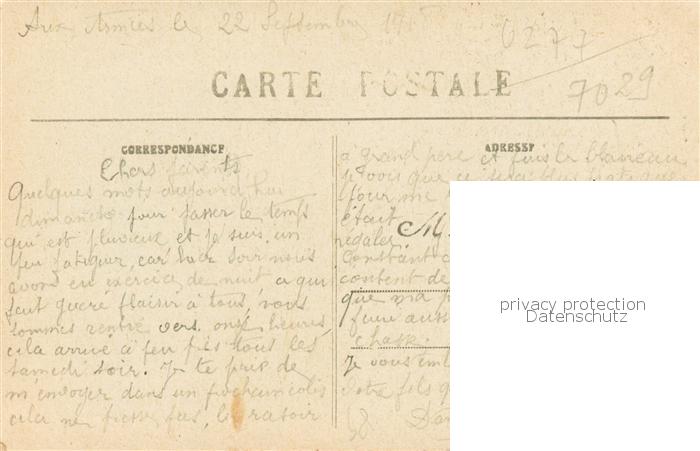 Aux Armées le 22 Septembre 191
0277
7029
CARTE POSTALE
CORRESPONDANCE
ADRESSE
Chers parents
Quelques mots aujourd'hui
dimanche pour passer le temps
qui est pluvieux et je suis un
peu fatiguer, car hier soir nous
avons eu exercice de nuit a qui
fait guere plaisir à tous, nous
sommes rentré vers onze heures
cela arrive à peu près tous les
samedi soir. Je te prie de
m'envoyer dans un prochain colis
cela ne presse pas, le rasoir
à grand pere et puis le blaireau
je vois que ce sera plus pratique
pour me
était
M.
régaler
Constant
content de
que ma
chasse
Je vous em
Votre fils q
privacy protection
Datenschutz